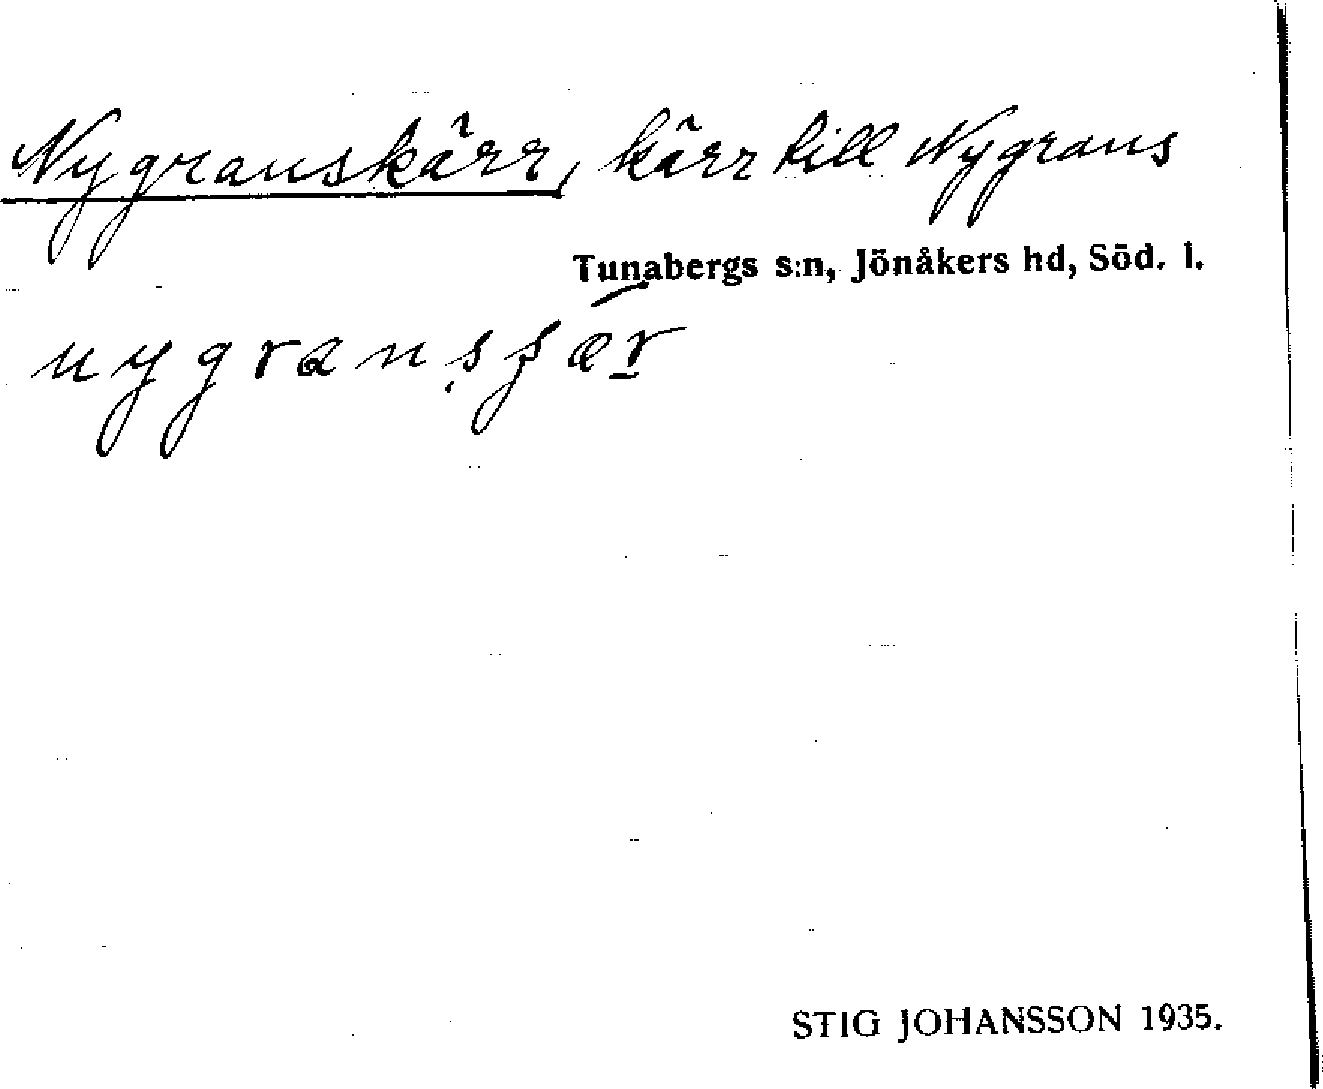 Nygranskärr, kärr till Nygrans
Tunabergs s:n, Jönåkers hd, Söd. l.
STIG JOHANSSON 1935.